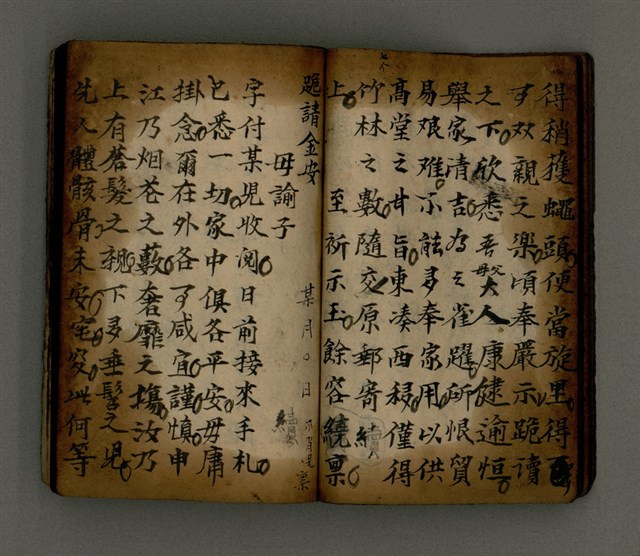 得稍獲蠅頭便當旋里得
才双親之樂頃奉嚴示跪讀
之下欣悉吾父母大人康健逾恒
舉家清吉為之雀躍所恨貿
易艱难不能多奉家用以供
髙堂之甘旨東凑西移僅得
竹林之數隨交原郵寄續
上至祈示玉餘容繞禀
跪請金安 某月〇日 禀
母諭子
字付某児收閱日前接來手札
已悉一切家中俱各平安毋庸
掛念爾在外各才咸宜謹慎申
江乃烟花之藪奢靡之塲汝乃
上有蒼髮之親下多垂髫之児
先人體骸骨未安窀穸此何等